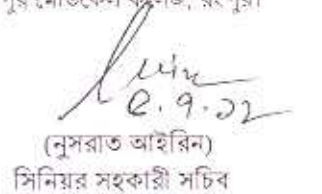 মেডিকেল কলেজ, রংপুর।
৫.৭.১২
(নুসরাত আইরিন)
সিনিয়র সহকারী সচিব